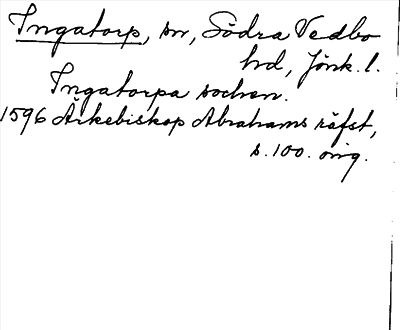 Ingatorp, sn, Södra Vedbo
hd, Jönk. l.
Ingatorpa sochen.
1596 Ärkebiskop Abrahams räfst,
s. 100. orig.